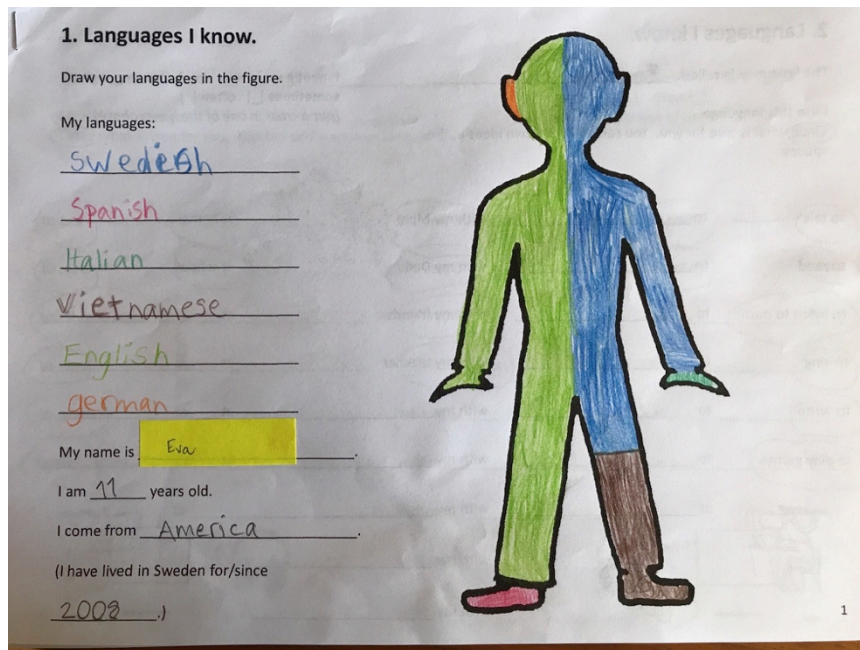 1. Languages I know.
Draw your languages in the figure.
My languages:
Swedish
Spanish
Italian
Vietnamese
English
german
My name is Eva.
I am 11 years old.
I come from America.
(I have lived in Sweden for/since
2008.)
1